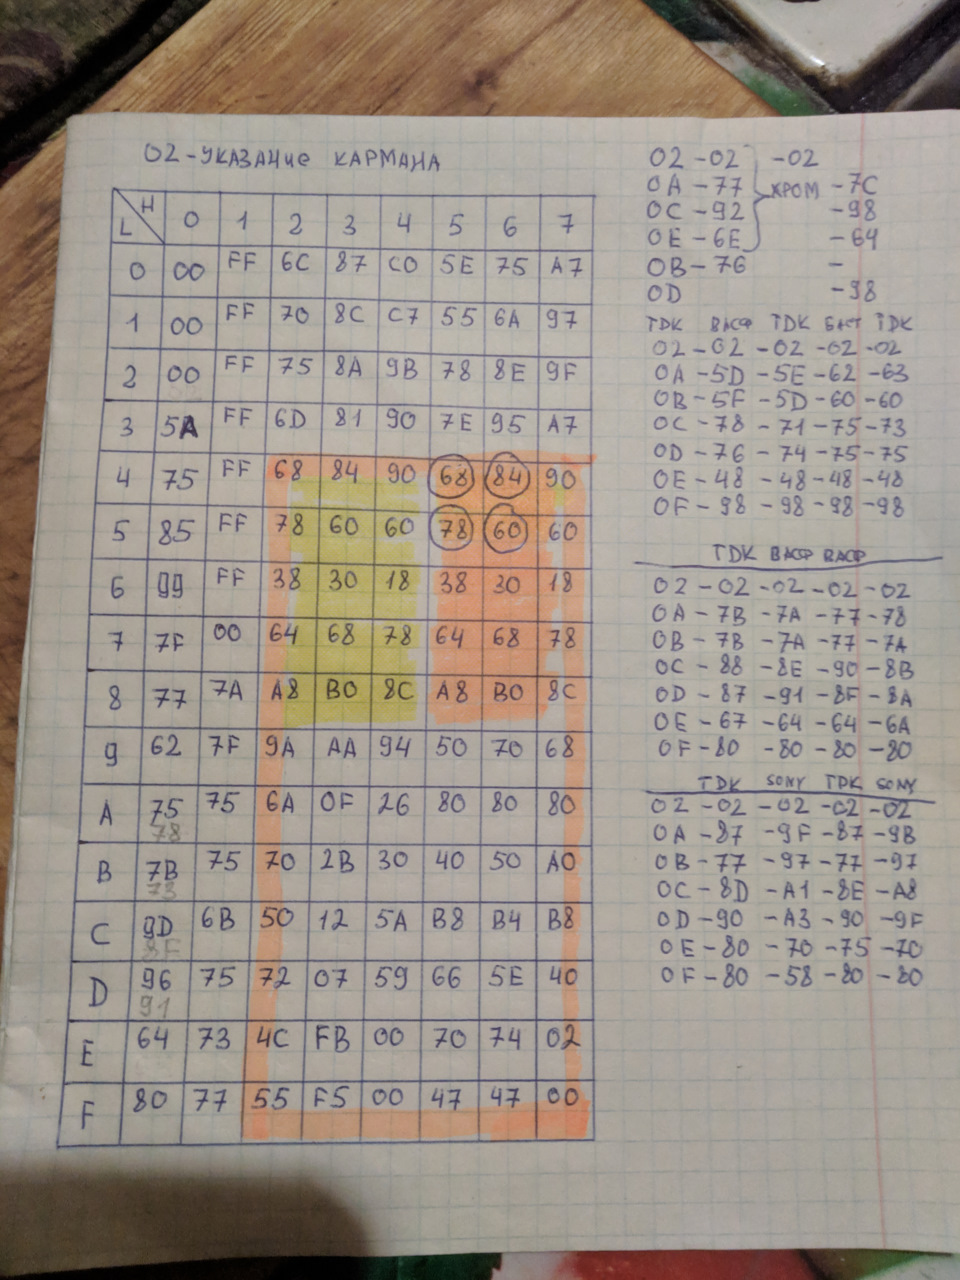 02-УКАЗАНИЕ КАРМАНА
H
L 0 1 2 3 4 5 6 7
0 00 FF 6C 87 C0 5E 75 A7
1 00 FF 70 8C C7 55 6A 97
2 00 FF 75 8A 9B 78 8E 9F
3 5A FF 6D 81 90 7E 95 A7
4 75 FF 68 84 90 68 84 90
5 85 FF 78 60 60 78 60 60
6 99 FF 38 30 18 38 30 18
7 7F 00 64 68 78 64 68 78
8 77 7A A8 B0 8C A8 B0 8C
9 62 7F 9A AA 94 50 70 68
A 75 75 6A 0F 26 80 80 80
78
B 7B 75 70 2B 30 40 50 A0
73
C 9D 6B 50 12 5A B8 B4 B8
8F
D 96 75 72 07 59 66 5E 40
91
E 64 73 4C FB 00 70 74 02
F 80 77 55 F5 00 47 47 00
02-02 -02
0A-77 ХРОМ -7C
0C-92 -98
0E-6E -64
0B-76 -
0D -98
TDK BASF TDK БАСТ TDK
02-02-02-02-02
0A-5D-5E-62-63
0B-5F-5D-60-60
0C-78-71-75-73
0D-76-74-75-75
0E-48-48-48-48
0F-98-98-98-98
TDK BASF BASF
02-02-02-02-02
0A-7B-7A-77-78
0B-7B-7A-77-7A
0C-88-8E-90-8B
0D-87-91-8F-8A
0E-67-64-64-6A
0F-80-80-80-80
TDK SONY TDK SONY
02-02-02-02-02
0A-87-9F-87-9B
0B-77-97-77-97
0C-8D-A1-8E-A8
0D-90-A3-90-9F
0E-80-70-75-70
0F-80-58-80-80